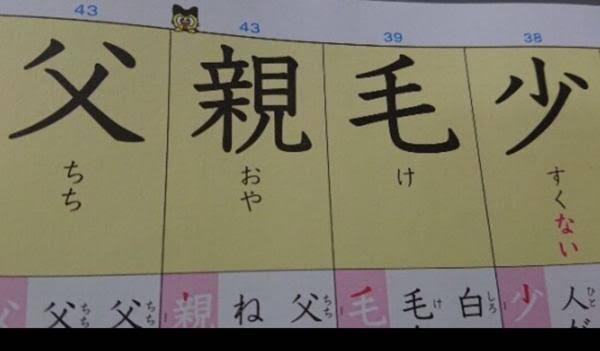 43
43
39
38
父
親
毛
少
ちち
おや
け
すくない
父
父ちち
父ちち
親
ね
父ちち
毛
毛け
白しろ
少
人ひと